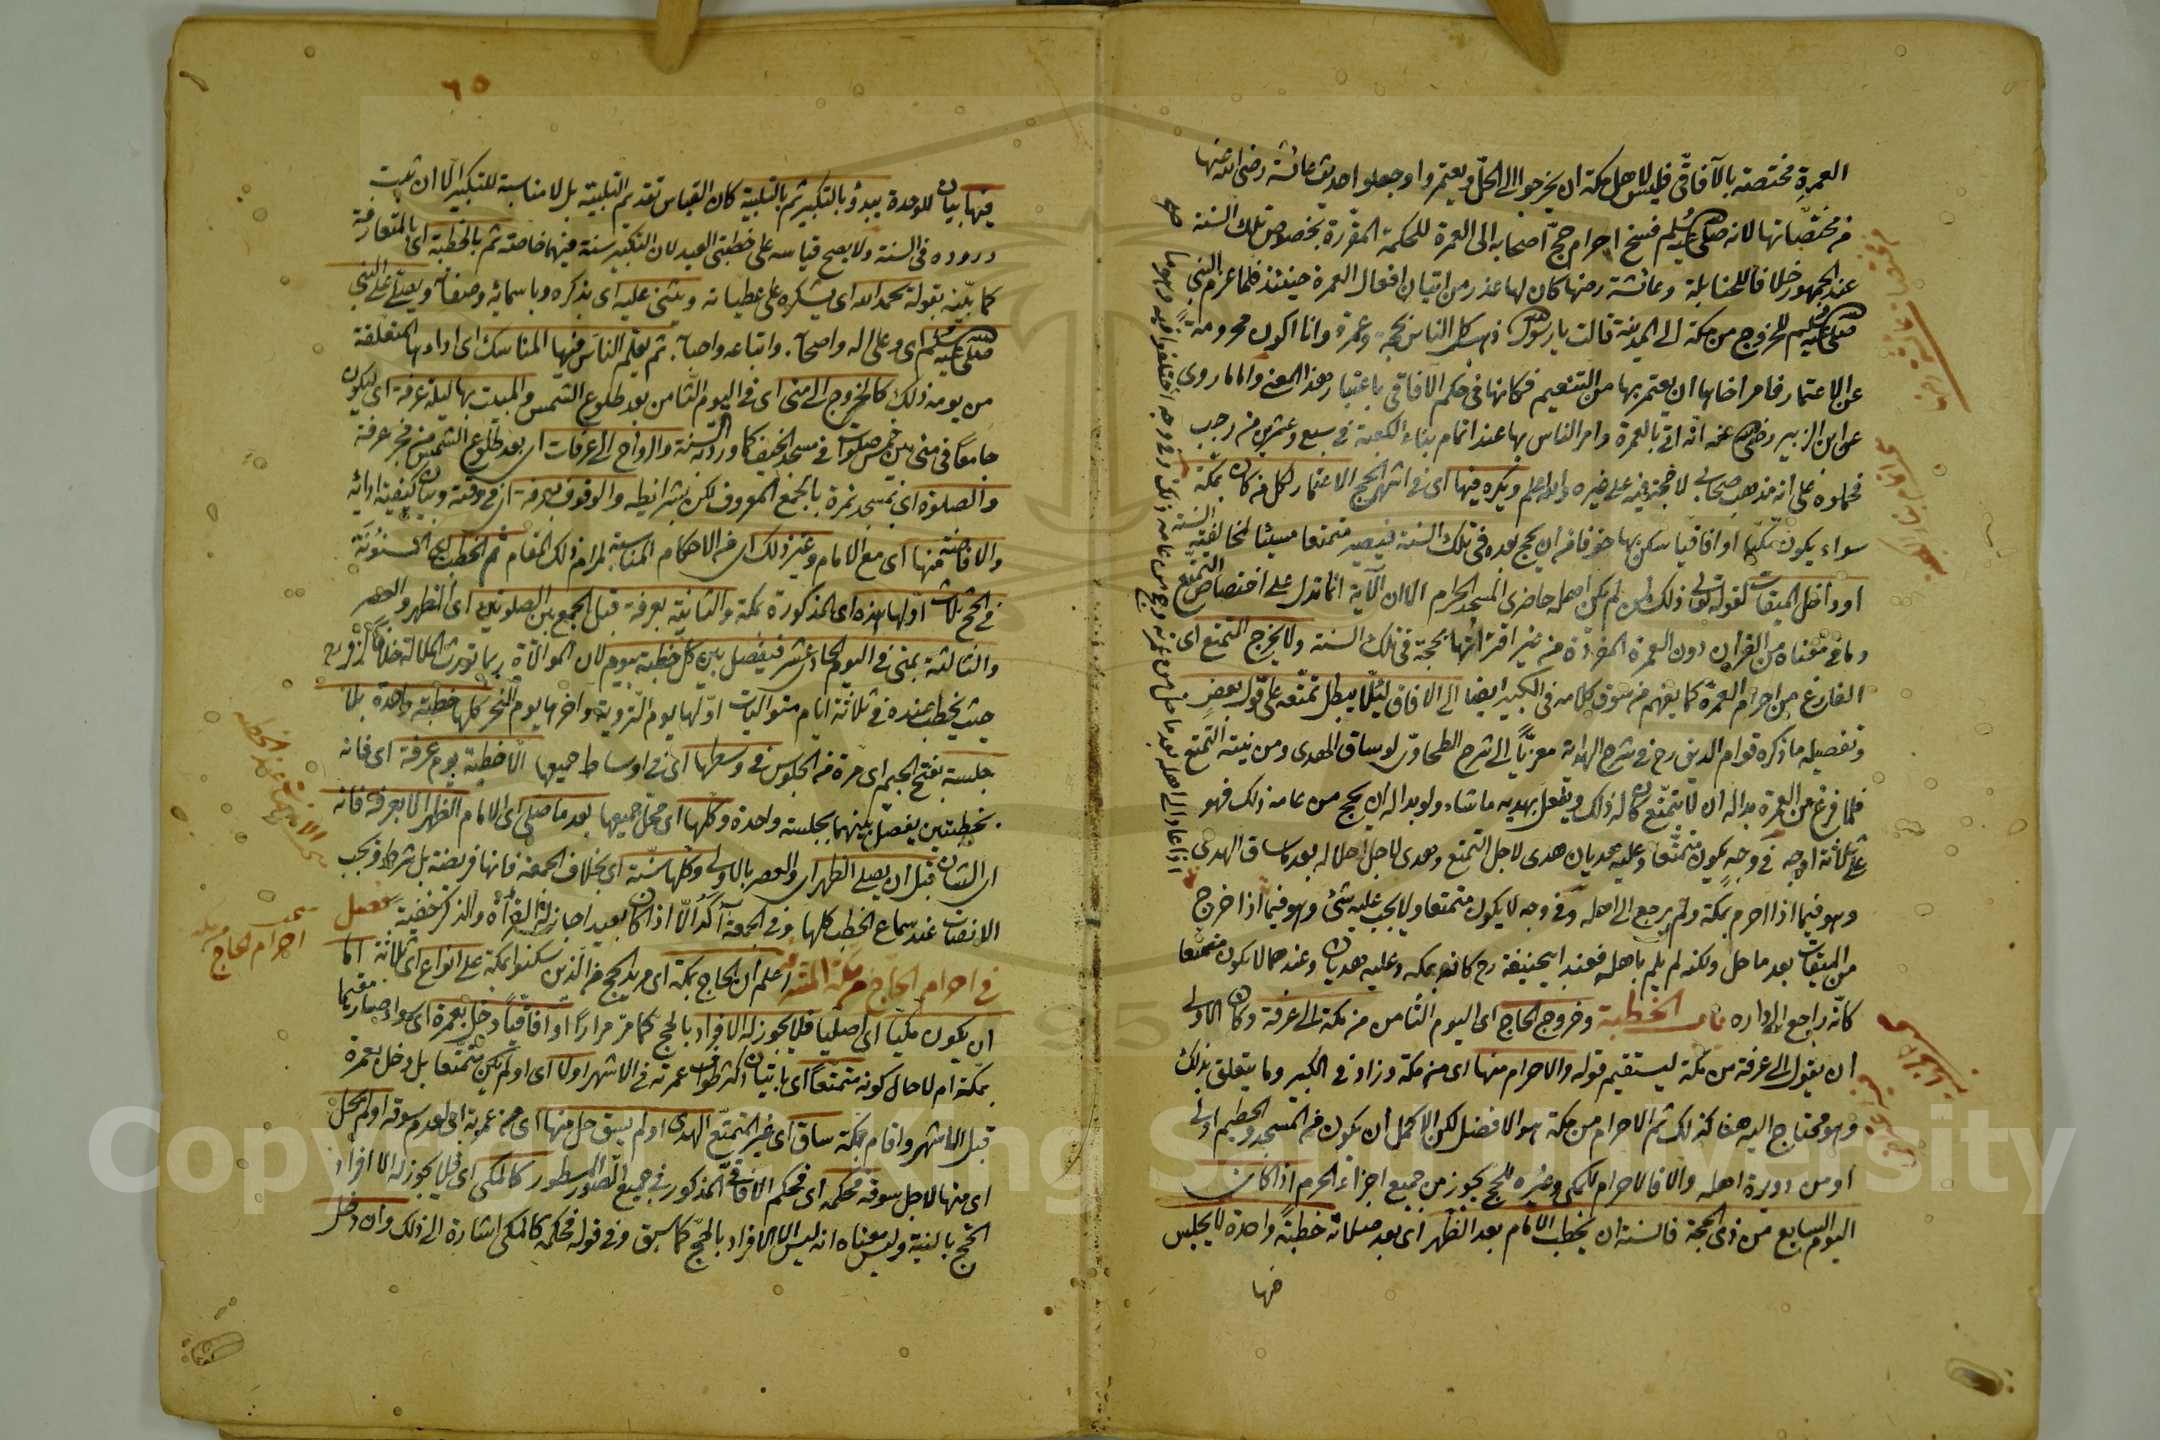 العمرة مختصة بالآفاقي فليس لاهل مكة ان يخرجوا الى الحل ويعتمروا وجعلوا حديث عائشة رضي الله عنها
من مختصاتها لانه صلى الله عليه وسلم فسخ احرام حج اصحابه الى العمرة للحكمة المقررة بخصوص تلك السنة
عند الجمهور خلافا للحنابلة وعائشة رضها كان لها عذر من اتيان افعال العمرة حينئذ فلما عزم النبي
صلى الله عليه وسلم للخروج من مكة الى المدينة قالت يا رسول الله كل الناس بحجة وعمرة وانا اكون محرومة
عن الاعتمار فامر اخاها ان يعتمر بها من التنعيم فكانها في حكم الآفاقي باعتبار هذا المعنى واما ما روي
عن ابن الزبير رضي الله عنه انه اتى بالعمرة وامر الناس بها عند اتمام بناء الكعبة في سبع وعشرين من رجب
فحملوه على انه مذهب صحابي لا حجة فيه على غيره والله اعلم ويكره فيها اى في اشهر الحج الاعتمار لكل من كان بمكة
سواء يكون مكيا او آفاقيا سكن بها خوفا من ان يحج بعده في تلك السنة فيصير متمتعا مسيئا لمخالفته السنة
او داخل الميقات لقوله تعالى ذلك لمن لم يكن اهله حاضرى المسجد الحرام الا ان الآية انما تدل على اختصاص التمتع
وما في معناه من القران دون العمرة المفردة من غير اقترانها بحجة في تلك السنة ولا يخرج المتمتع اى
الفارغ من احرام العمرة كما يفهم من سوق كلامه في الكبير ايضا الى الآفاق لئلا يبطل تمتعه على قول بعض
وتفصيله ما ذكره قوام الدين رح في شرح الهداية معزيا الى شرح الطحاوي لو ساق الهدى ومن نيته التمتع
فلما فرغ من العمرة بدا له ان لا يتمتع كان له ذلك ويفعل بهديه ما شاء ولو بدا له ان يحج من عامه ذلك فهو
على ثلاثة اوجه في وجه يكون متمتعا وعليه هديان هدى لاجل التمتع وهدى لاجل احلاله بعد ما ساق الهدى
وهو فيما اذا احرم بمكة ولم يرجع الى اهله وفي وجه لا يكون متمتعا ولا يجب عليه شئ وهو فيما اذا خرج
من الميقات بعد ما حل ولكنه لم يلم باهله فعند ابي حنيفة رح كانه بمكة وعليه هديان وعندهما لا يكون متمتعا
كانه راجع الى داره باب الخطبة وخروج الحاج اى اليوم الثامن من مكة الى عرفة وكان الاولى
ان يقول الى عرفة من مكة ليستقيم قوله والاحرام منها اى من مكة وزاد في الكبير وما يتعلق بذلك
وهو محتاج اليه هنا كذلك ثم الاحرام من مكة هو الافضل لكن الاكمل ان يكون من المسجد والحطيم اولى
او من دويرة اهله والا فالاحرام للمكي وغيره للحج يجوز من جميع اجزاء الحرم اذا كان
اليوم السابع من ذى الحجة فالسنة ان يخطب الامام بعد الظهر اى بعد صلاته خطبة واحدة لا يجلس
فيها
٦٥
فيها بيان للوحدة يبدؤ بالتكبير ثم بالتلبية كان القياس تقديم التلبية بل لا مناسبة للتكبير الا ان ثبت
وروده في السنة ولا يصح قياسه على خطبتي العيد لان التكبير سنة فيهما خاصة ثم بالخطبة اى المتعارفة
كما بينه بقوله يحمد الله اى يشكره على عطياته ويثني عليه اى بذكره وباسمائه وصفاته ويصلى على النبي
صلى الله عليه وسلم اى وعلى اله واصحابه واتباعه واحبابه ثم يعلم الناس فيها المناسك اى ادابها المتعلقة
من يومه ذلك كالخروج الى منى اى في اليوم الثامن بعد طلوع الشمس والمبيت بها ليلة عرفة اى ليكون
جامعا في منى بين خمس صلوات في مسجد الخيف كما وردت السنة والرواح الى عرفات اى بعد طلوع الشمس من فجر عرفة
والصلوة اى بمسجد نمرة بالجمع المعروف لكن بشرائطه والوقوف بعرفة اى في وقته وبيان كيفية ادائه
والافاضة منها اى مع الامام وغير ذلك اى من الاحكام المناسبة لمرام ذلك المقام ثم الخطب المسنونة
في الحج ثلاث اولها هذه اى المذكورة بمكة والثانية بعرفة قبل الجمع بين الصلوتين اى الظهر والعصر
والثالثة بمنى في اليوم الحادى عشر فيفصل بين كل خطبة بيوم لان الموالاة ربما تورث الملالة خلافا لزفر رح
حيث يخطب عنده في ثلاثة ايام متواليات اولها يوم التروية واخرها يوم النحر كلها خطبة واحدة بلا
جلسة بفتح الجيم اى مرة من الجلوس في وسطها اى في اوساط جميعها الا خطبة يوم عرفة اى فانه
بخطبتين يفصل بينهما بجلسة واحدة وكلها اى محل جميعها بعد ما صلى اى الامام الظهر الا بعرفة فانه
اى الشان قبل ان يصلى الظهر اى والعصر بالاولى وكلها سنة اى بخلاف الجمعة فانها فريضة بل شرط ويجب
الانصات عند سماع الخطب كلها وفي الجمعة آكد الا اذا كان بعيدا جاز له القراءة والذكر خفية فصل
في احرام الحاج من مكة المشرفة اعلم ان الحاج بمكة اى مريد الحج من الذين سكنوا بمكة على انواع اى ثلاثة اما
ان يكون مكيا اى اصليا فلا يجوز له الا الافراد بالحج كما مر مرارا او آفاقيا دخل بعمرة اى سواء صار مقيما
بمكة ام لا حال كونه متمتعا اى باتيان اكثر طواف عمرته في الاشهر اولا اى او لم يكن متمتعا بل دخل بعمرة
قبل الاشهر واقام بمكة ساق اى غير المتمتع الهدى او لم يسق حل منها اى من عمرته اى لعدم سوقه او لم يحل
اى منها لاجل سوقه فحكمه اى فحكم الآفاقي المذكور في جميع الصور المسطور كالمكي اى فلا يجوز له الا افراد
الحج بالنية وليس معناه انه ليس له الا الافراد بالحج كما سبق وفي قوله فحكمه كالمكي اشارة الى ذلك وان دخل
مبحث
احرام الحاج
Copyright © King Saud University